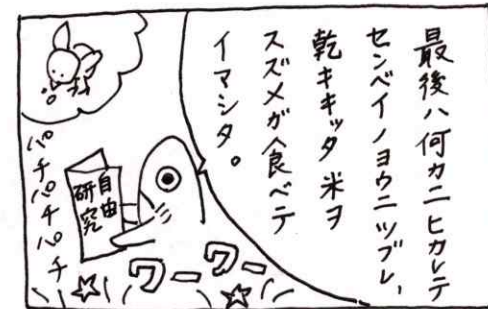 最後ハ何カニヒカレテ
センベイノヨウニツブレ、
乾キキッタ米ヲ
スズメガ食ベテ
イマシタ。
自由
研究
パチパチパチ
ワーワー